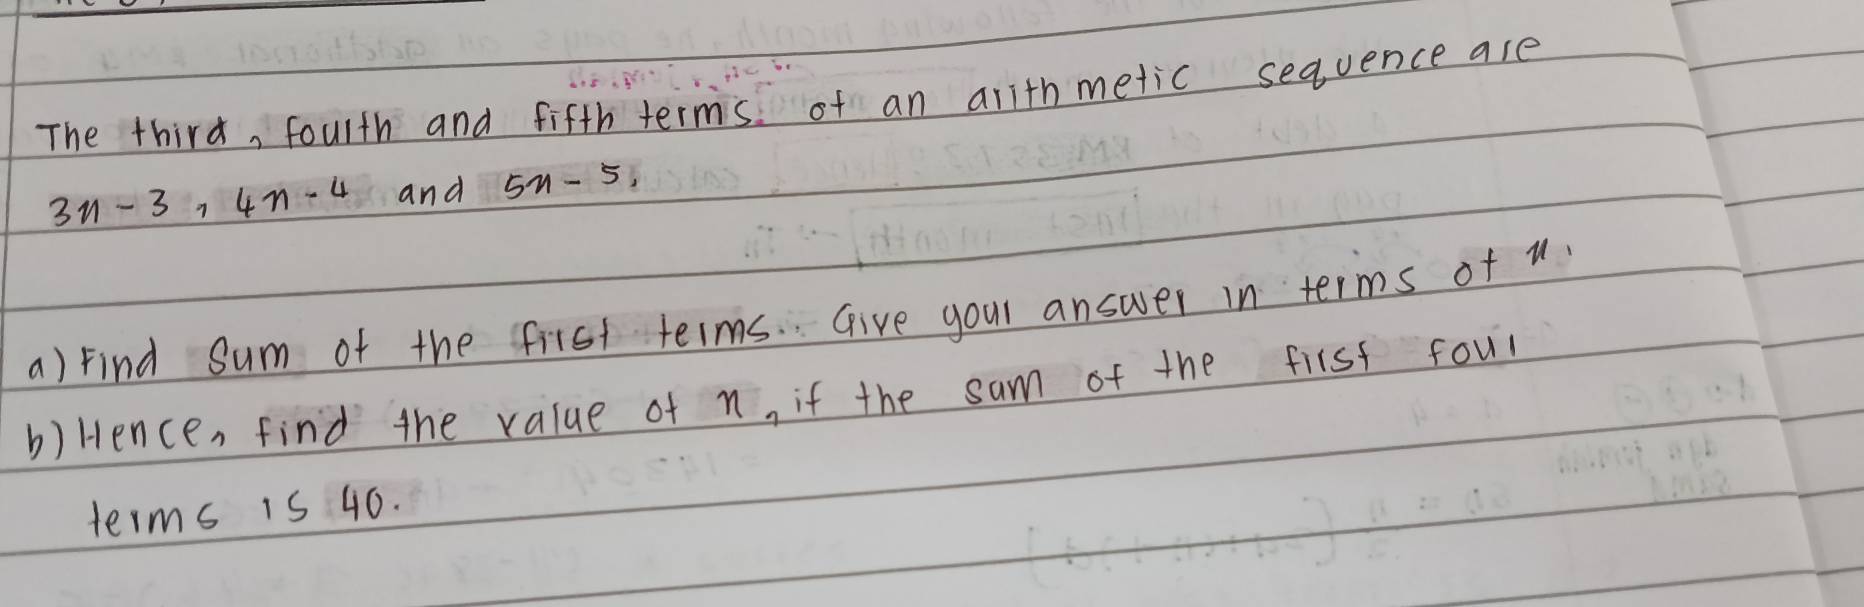 The third, fourth and fifth terms of an arithmetic sequence are
3n-3, 4n-4 and 5n-5.
a) Find sum of the first terms. Give your answer in terms of n.
b) Hence, find the value of n, if the sum of the first four
terms is 40.